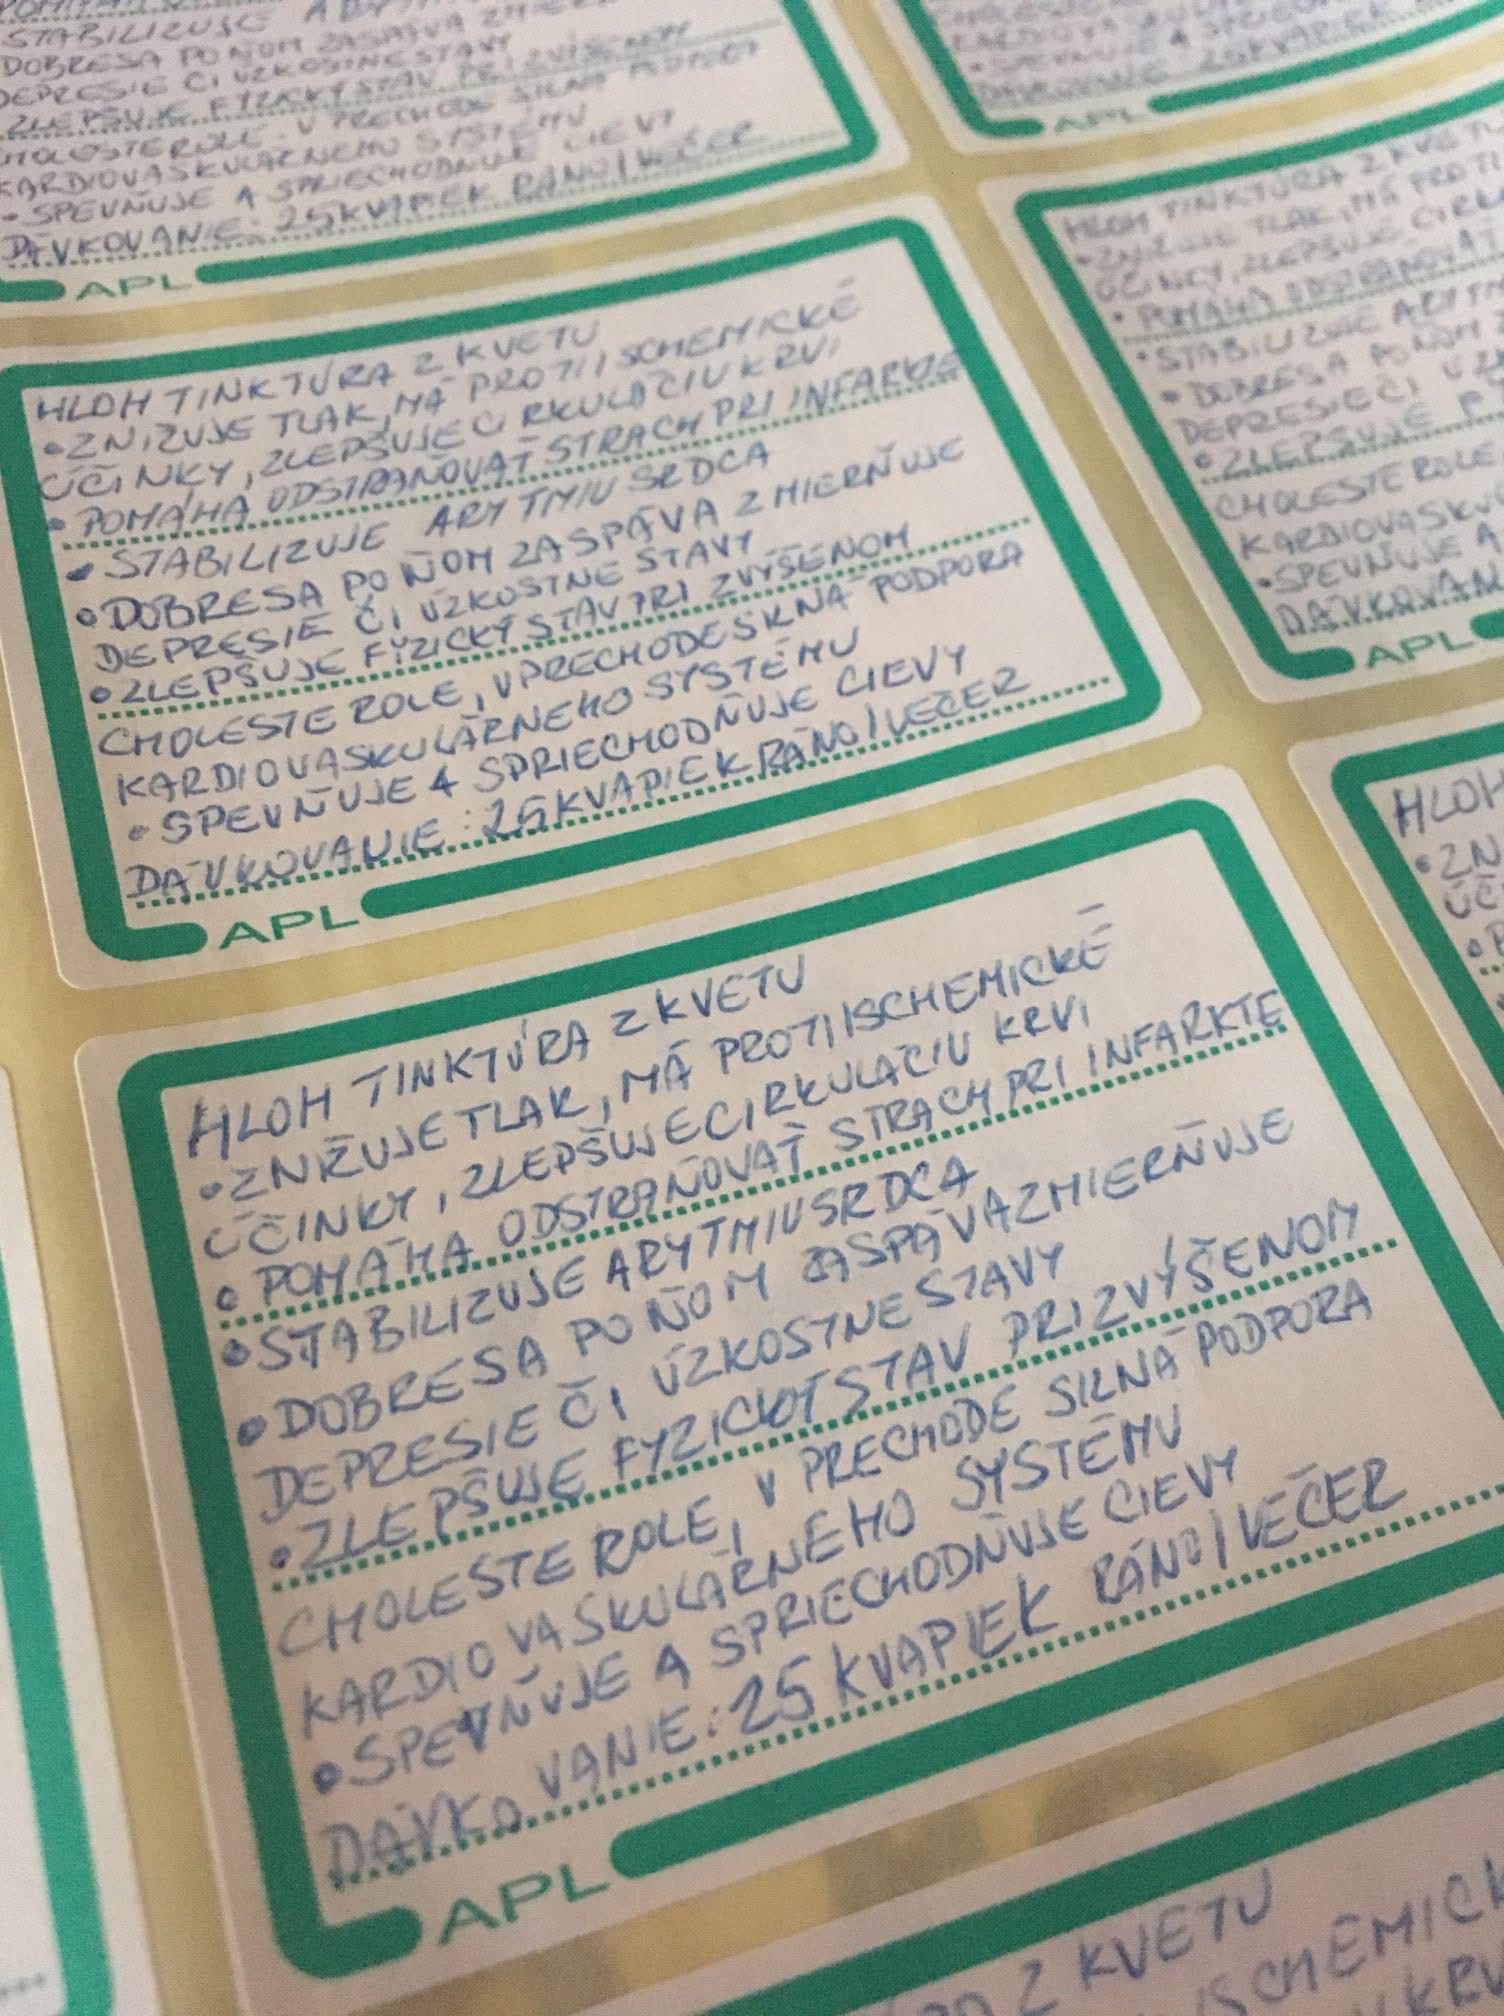 STABILIZUJE
DOBRESA PO ŇOM ZASPÁVA ZMIER
DEPRESIE ČI ÚZKOSTNE STAVY
ZLEPŠUJE FYZICKÝ STAV PRI ZVÝŠENOM
CHOLESTEROLE V PRECHODE SILNÁ PODPOR
KARDIOVASKULÁRNEHO SYSTÉMU
• SPEVŇUJE A SPRIECHODŇUJE CIEVY
DÁVKOVANIE: 25 KVAPIEK RÁNO/VEČER
APL
APL
HLOH TINKTÚRA Z KVETU
• ZNIZUJE TLAK, MÁ PROTIISCHEMICKÉ
ÚČINKY, ZLEPŠUJE CIRKULACIU KRVI
• POMÁHA ODSTRAŇOVAŤ STRACH PRI INFARKTE
• STABILIZUJE ARYTMIU SRDCA
• DOBRESA PO ŇOM ZASPÁVA ZMIERŇUJE
DEPRESIE ČI ÚZKOSTNE STAVY
• ZLEPŠUJE FYZICKÝ STAV PRI ZVÝŠENOM
CHOLESTEROLE, V PRECHODE SILNÁ PODPORA
KARDIOVASKULÁRNEHO SYSTÉMU
• SPEVŇUJE A SPRIECHODŇUJE CIEVY
DÁVKOVANIE: 25 KVAPIEK RÁNO/VEČER
APL
HLOH TINKTÚRA Z KVETU
• ZNIZUJE TLAK, MÁ PROTI
ÚČINKY, ZLEPŠUJE CIRK
• POMÁHA ODSTRAŇOVAŤ
• STABILIZUJE ARYTM
• DOBRESA PO ŇOM
DEPRESIE ČI ÚZ
• ZLEPŠUJE F
CHOLESTEROLE
KARDIOVASKU
• SPEVŇUJE A
DÁVKOVAN
APL
HLOH TINKTÚRA Z KVETU
• ZNIŽUJE TLAK, MÁ PROTIISCHEMICKÉ
ÚČINKY, ZLEPŠUJE CIRKULACIU KRVI
• POMÁHA ODSTRAŇOVAŤ STRACH PRI INFARKTE
• STABILIZUJE ARYTMIU SRDCA
• DOBRESA PO ŇOM ZASPÁVA ZMIERŇUJE
DEPRESIE ČI ÚZKOSTNE STAVY
• ZLEPŠUJE FYZICKÝ STAV PRI ZVÝŠENOM
CHOLESTEROLE, V PRECHODE SILNÁ PODPORA
KARDIOVASKULÁRNEHO SYSTÉMU
• SPEVŇUJE A SPRIECHODŇUJE CIEVY
DÁVKOVANIE: 25 KVAPIEK RÁNO/VEČER
APL
HLOH
• ZN
ÚČ
Z KVETU
ISCHEMICK
KRV